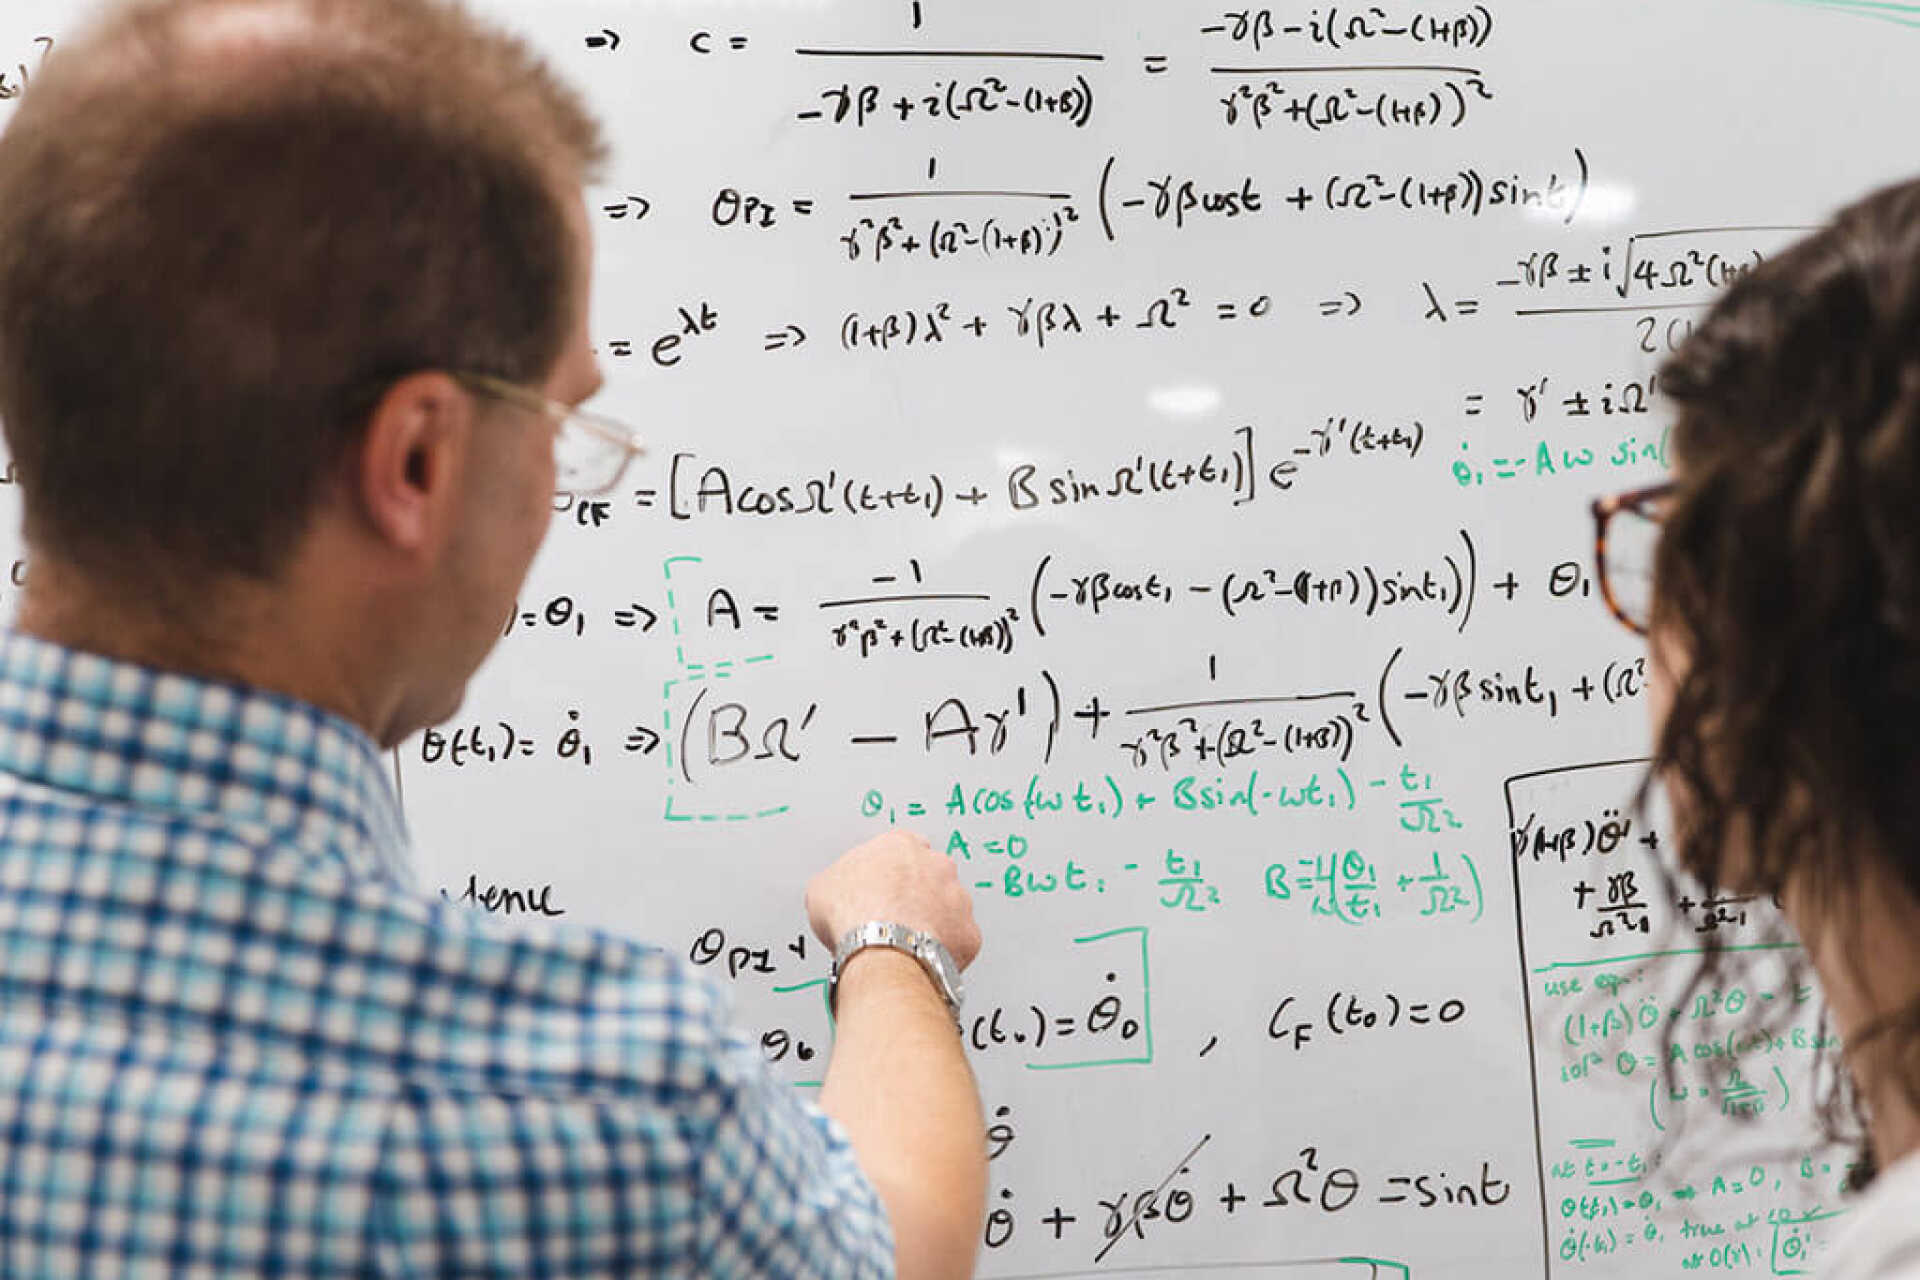 => c = 1 / (-γβ + i(Ω²-(1+β))) = (-γβ - i(Ω²-(1+β))) / (γ²β² + (Ω²-(1+β))²)
=> θPI = 1 / (γ²β² + (Ω²-(1+β))²) (-γβcost + (Ω²-(1+β))sint)
= e^λt => (1+β)λ² + γβλ + Ω² = 0 => λ = -γβ ± i√4Ω²(1+β
2(1
= γ' ± iΩ'
θ̇₁ = -Aω sin(
CF = [AcosΩ'(t+t₁) + BsinΩ'(t+t₁)] e^-γ'(t+t₁)
)=θ₁ => A = -1 / (γ²β² + (Ω²-(1+β))²) (-γβcost₁ - (Ω²-(1+β))sint₁)) + θ₁
θ(-t₁) = θ̇₁ => (BΩ' - Aγ') + 1 / (γ²β² + (Ω²-(1+β))²) (-γβsint₁ + (Ω²
θ₁ = Acos(-ωt₁) + Bsin(-ωt₁) - t₁/Ω²
A = 0
-Bωt₁ - t₁/Ω² B = -1/ω(θ₁/t₁ + 1/Ω²)
θPI +
(t₀) = θ̇₀ , CF(t₀) = 0
θ̇
θ̇ + γβθ̇ + Ω²θ = sint
γ(1+β)θ̈ +
+ γβ/Ω²
use eqn:
(1+β)θ̈ + Ω²θ = t
solⁿ θ = A cos(ωt) + B sin
at t = -t₁:
θ(-t₁) = θ₁ => A = 0, B =
θ̇(-t₁) = θ̇₁ true at